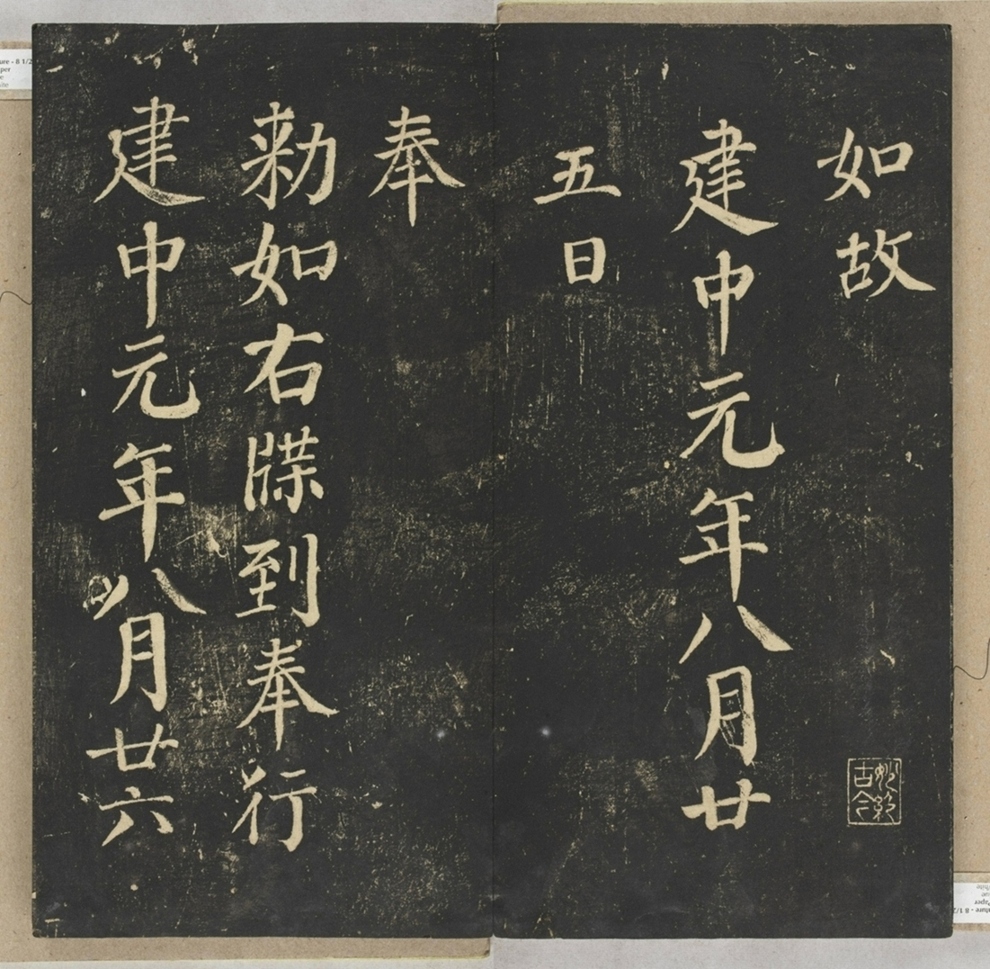 如故
建中元年八月廿
五日
奉
勑如右牒到奉行
建中元年八月廿六